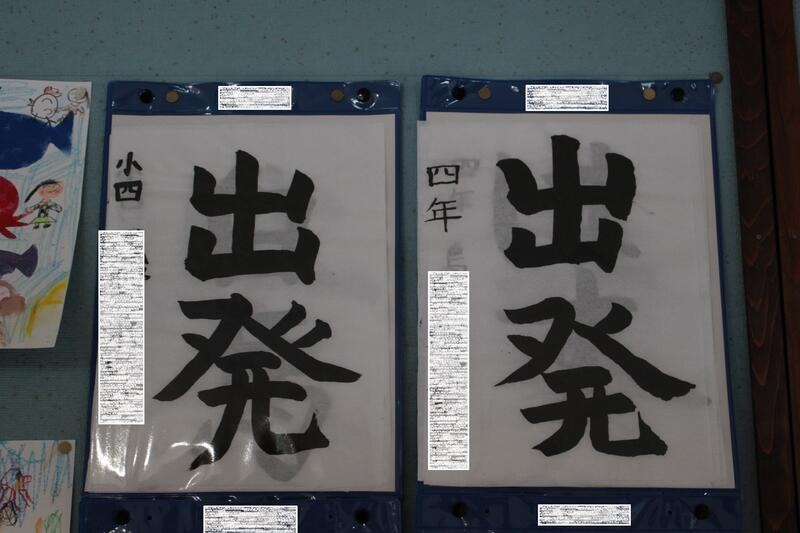 小四
出発
四年
出発